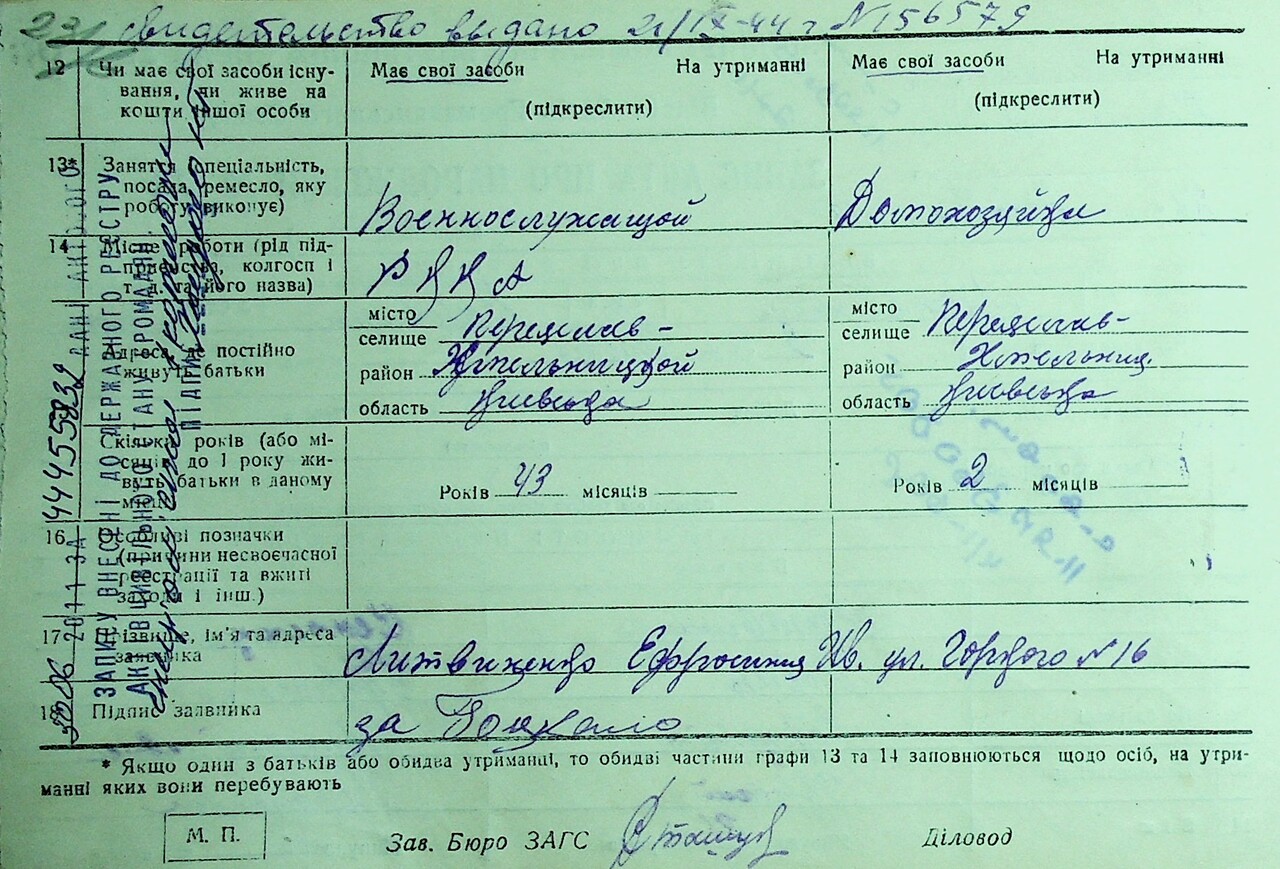 свидетельство выдано 21/IX-44 г N 156579
12 Чи має свої засоби існування, чи живе на кошти іншої особи
Має свої засоби На утриманні
(підкреслити)
Має свої засоби На утриманні
(підкреслити)
13* Заняття спеціальність,
посада, ремесло, яку
роботу виконує)
Военнослужащой
Домохозяйка
14 Місце роботи (рід під-
приємства, колгосп і
т. д. та його назва)
РККА
Адреса, де постійно
живуть батьки
місто
селище Переяслав-
район Хмельницкой
область Киевська
місто
селище Переяслав-
район Хмельниц
область Киевська
Скільки років (або мі-
сяців до 1 року жи-
вуть батьки в даному
місці
Років 43 місяців
Років 2 місяців
16 Особливі позначки
(причини несвоєчасної
реєстрації та вжиті
заходи і інш.)
17 Прізвище, ім'я та адреса
заявника
Литвиненко Ефросиния Ив. ул. Горького N 16
18 Підпис заявника
за
* Якщо один з батьків або обидва утриманці, то обидві частини графи 13 та 14 заповнюються щодо осіб, на утри-
манні яких вони перебувають
М. П.
Зав. Бюро ЗАГС
Діловод
ДАНІ АКТОВОГО
ЗАПИСУ ВНЕСЕНІ ДО ДЕРЖАВНОГО РЕЄСТРУ
АКТІВ ЦИВІЛЬНОГО СТАНУ ГРОМАДЯН
ПІДПИС